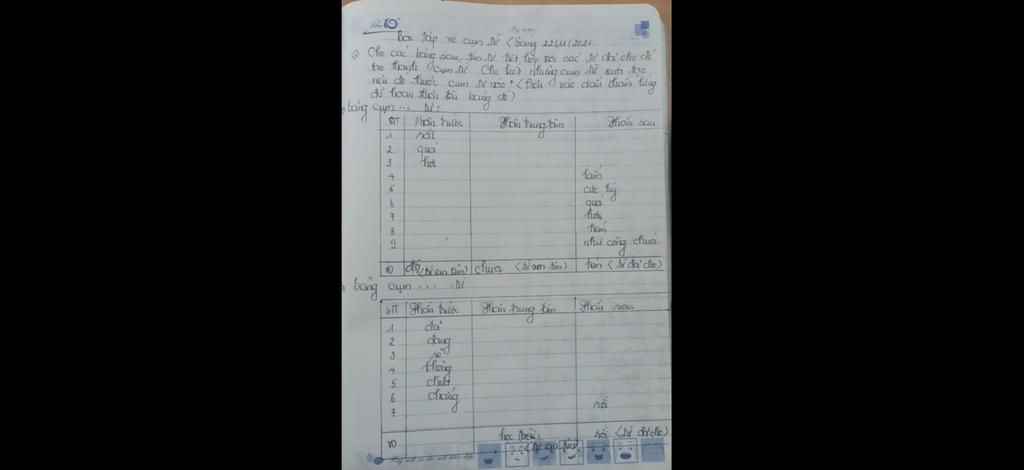 Bài tập về cụm từ (Sáng 22/11/2021
Cho các bảng sau, tìm từ kết hợp với các từ đã cho để
tạo thành cụm từ. Cho biết những cụm từ vừa tạo
nên đó thuộc cụm từ nào? (Điền vào dấu chấm lửng
để hoàn thiện tên bảng đó)
bảng cụm ... từ:
STT Phần trước Phần trung tâm Phần sau
1 rất
2 quá
3 hơi
4 lắm
5 cực kỳ
6 quá
7 hơn
8
9 như công chúa
10 chua
bảng cụm ... từ
STT Phần trước Phần trung tâm Phần sau
1 đã
2 đang
3 sẽ
4 không
5 chưa
6 chẳng
7 rồi
10 học (bài) rồi (từ đã cho)